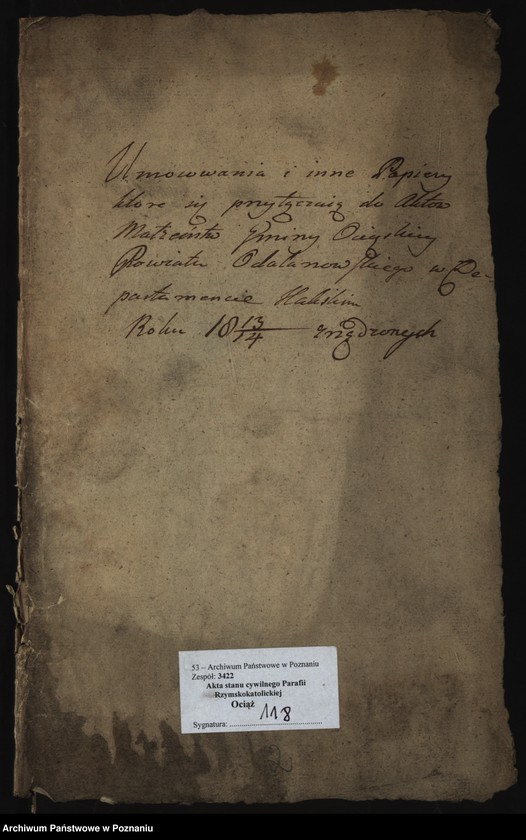 Umowwania i inne Papiery
które się przyłączaią do Aktów
Małżeństw Gminy Ociąskiey
Powiatu Odalanowskiego w De-
partamencie Kaliskim
Roku 18 13/14 urządzonych
53 – Archiwum Państwowe w Poznaniu
Zespół: 3422
Akta stanu cywilnego Parafii
Rzymskokatolickiej
Ociąż
Sygnatura: 118
Archiwum Państwowe w Poznaniu
Archiwum Państwowe w Poznaniu